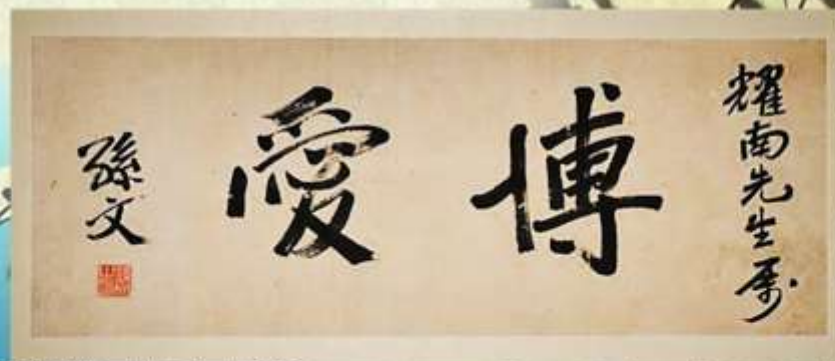 耀南先生屬
博愛
孫文